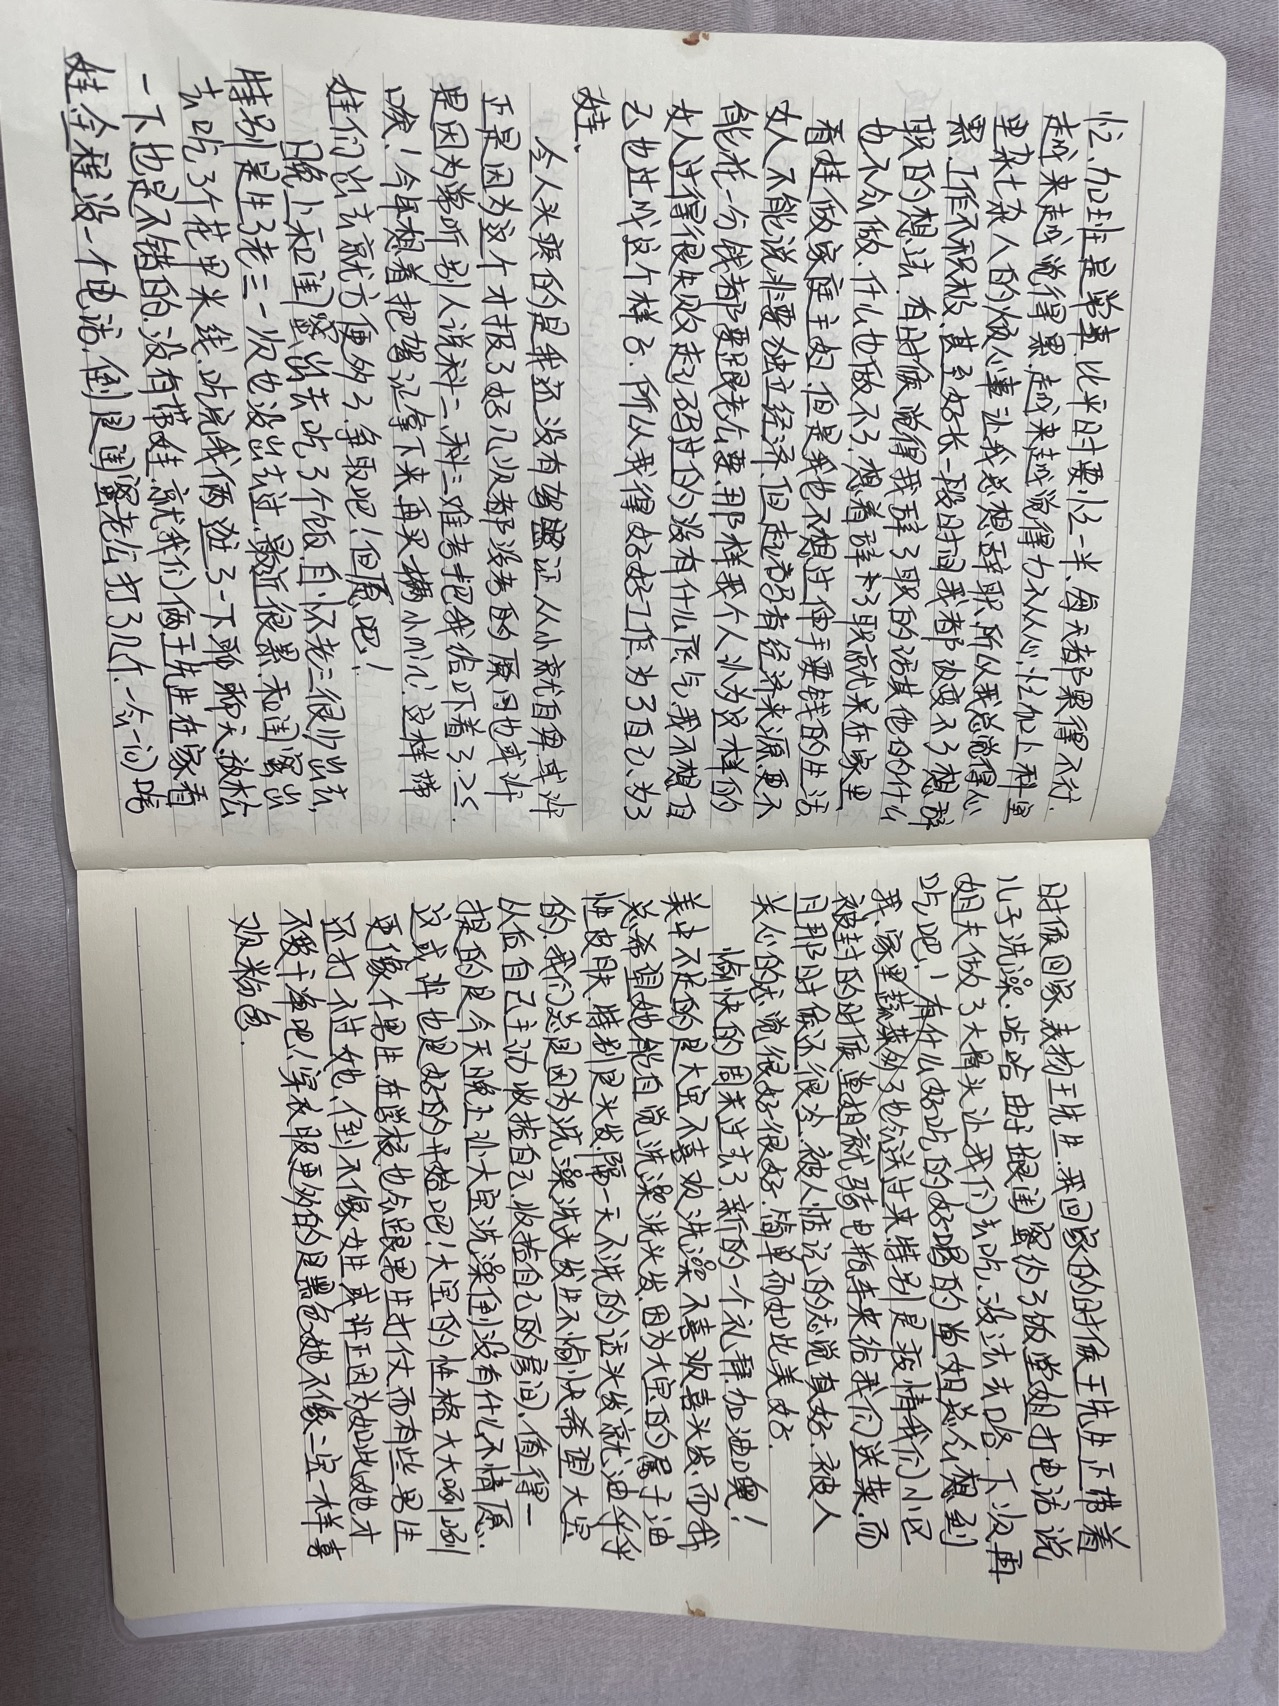 忙、加班是常事，比平时要忙一半，每天都累得不行.
越来越觉得累，越来越觉得力不从心，忙加上科室
里杂七杂八的烦心事让我总想辞职，所以我总觉得心
累，工作不积极，甚至好长一段时间我都改变不了想辞
职的想法，有时候觉得我辞了职的话其他的什么
也不会做，什么也做不了，想着辞了职就呆在家里
看娃做家庭主妇，但是我也不想过伸手要钱的生活
女人不能说非要独立经济，但起码有经济来源，要不
能花一分钱都要跟老公要，那样我个人认为这样的
女人过得很失败，起码过份的没有什么底气，我不想自
己也过成这个样子，所以我得好好工作，为了自己、为了
娃、
令人头疼的是我还没有驾照证，从小就自卑，或许
正是因为这个才报了好几次都没考的原因也或许
是因为常听别人说科二、科三难考把我给吓着了.25.
唉！今年想着把驾证拿下来再买辆小mini，这样带
娃们出去就方便多了，争取吧！但愿吧！
晚上和闺蜜出去吃了个饭，自从老三很少出去，
特别是生了老三一次也没出去过，最近很累，和闺蜜出
去吃了个花甲米线，吃完我俩逛了一下聊聊天放松
一下也是不错的，没有带娃，就我们俩王先生在家看
娃全程没一个电话，倒是闺蜜老公打了几个，一会一问啥
时候回家，表扬王先生，我回家的时候王先生正带着
儿子洗澡，哈哈，由于跟闺蜜约了饭堂姐打电话说
姐夫做了大骨头让我们去吃，没法去咯，下次再
吃吧！有什么好吃的好喝的堂姐总会想到
我，家里蔬菜多了也会送过来，特别是疫情我们小区
被封的时候堂姐就骑电瓶车来给我们送菜，而
且那时候还很冷，被人惦记的感觉真好，被人
关心的感觉很好很好，简单而如此美好.
愉快的周末过去了，新的一个礼拜加油噢！
美中不足的是大宝不喜欢洗澡，不喜欢洗头发，而我
总希望她能自觉洗澡洗头发，因为大宝的属于油
性皮肤，特别是头发，隔一天不洗的话头发就油乎乎
的，我们总是因为洗澡洗头发生不愉快，希望大宝
以后自己主动收拾自己，收拾自己的房间，值得一
提的是今天晚上让大宝洗澡倒没有什么不情愿.
这或许也是好的开始吧！大宝的性格大大咧咧
更像个男生，在学校也会跟男生打仗，而有些男生
还打不过她，倒不像女生，或许正因为如此她才
不爱干净吧！穿衣服更多的是黑色，她不像二宝一样喜
欢粉色.